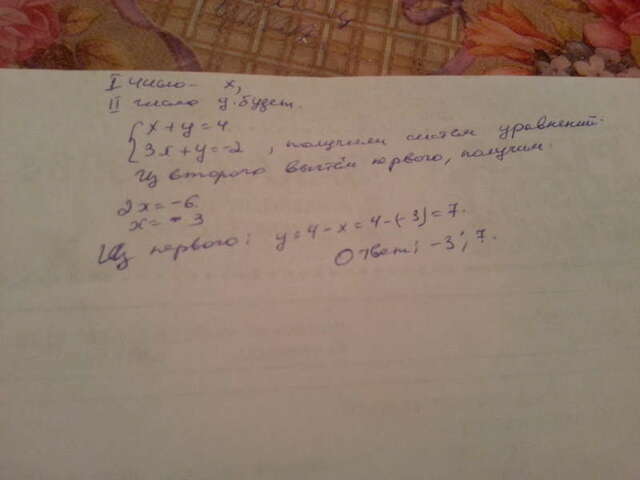 I число - x,
II число y будет.
{ x + y = 4
{ 3x + y = -2 , получили систем уравнений.
Из второго вычтём первого, получим:
2x = -6
x = -3
Из первого: y = 4 - x = 4 - (-3) = 7.
Ответ: -3; 7.